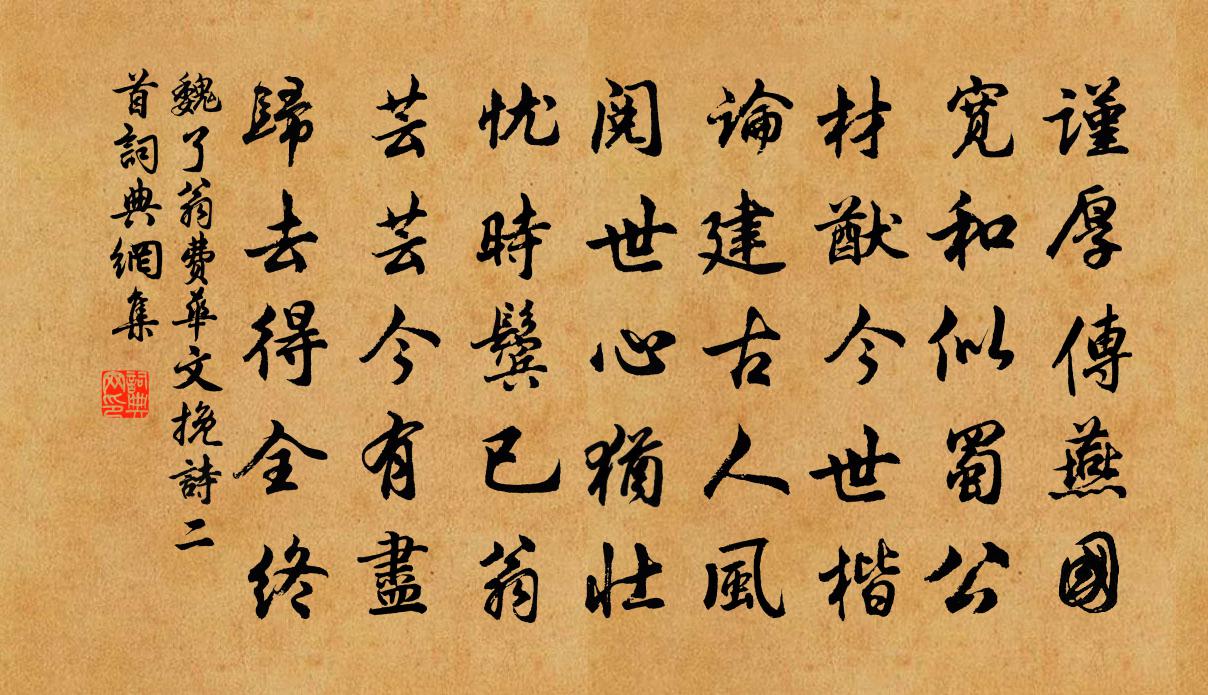 謹厚傳燕國
寬和似蜀公
材猷今世楷
論建古人風
閱世心猶壯
忧時鬓已翁
芸芸今有盡
歸去得全終
魏了翁費華文挽詩二
首詞典網集
詞典网印